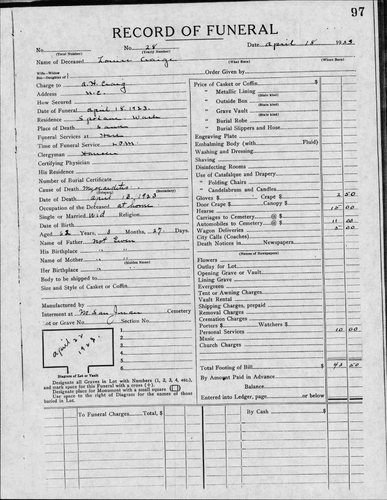 97
RECORD OF FUNERAL
No. No. 28 Date April 18 1923
(Total Number) (Yearly Number)
Name of Deceased Craig
(What Was) (Where Born)
Order Given by
Charge to A. H. Craig
Address
How Secured
Date of Funeral April 18, 1923.
Residence Spokane Wash
Place of Death Same
Funeral Services at
Time of Funeral Service
Clergyman
Certifying Physician
His Residence
Number of Burial Certificate
Cause of Death Myocarditis
Date of Death April 12, 1923
Occupation of the Deceased at home
Single or Married Wid Religion
Date of Birth
Aged Years, 8 Months 27 Days.
Name of Father Not Given
His Birthplace
Name of Mother
(Maiden Name)
Her Birthplace
Body to be shipped to
Size and Style of Casket or Coffin.
Manufactured by
Interment at Cemetery
Lot or Grave No. Section No.
1.
2.
3.
4.
5.
6.
April 24
1923.
Diagram of Lot or Vault
Designate all Graves in Lot with Numbers (1, 2, 3, 4, etc.),
and mark space for this Funeral with a cross (+).
Designate place for Monument with a small square
Use space to the right of Diagram for the names of those
buried in Lot.
Price of Casket or Coffin
" Metallic Lining
" Outside Box
" Grave Vault
" Burial Robe
" Burial Slippers and Hose
Engraving Plate
Embalming Body (with Fluid)
Washing and Dressing
Shaving
Disinfecting Rooms
Use of Catafalque and Drapery
" Folding Chairs
" Candelabrum and Candles
Gloves $ Crape $ 2 50
Door Crape $ Canopy $
Hearse 15 00
Carriages to Cemetery @ $
Automobiles to Cemetery @ $ 11 00
Wagon Deliveries 5 00
City Calls (Coaches)
Death Notices in Newspapers.
(Name of Newspapers)
Flowers
Outlay for Lot
Opening Grave or Vault
Lining Grave
Evergreen
Tent or Awning Charges
Vault Rental
Shipping Charges, prepaid
Removal Charges
Cremation Charges
Porters $ Watchers $
Personal Services 10 00
Music
Church Charges
Total Footing of Bill $ 43 50
By Amount Paid in Advance
Balance
Entered into Ledger, page or below.
To Funeral Charges Total, $
By Cash $